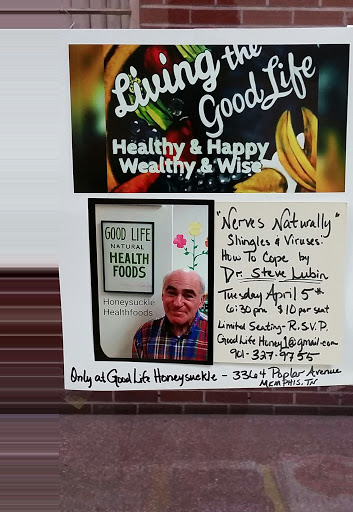 Living the
Good Life
Healthy & Happy
Wealthy & Wise
GOOD LIFE
NATURAL
HEALTH
FOODS
Honeysuckle
Healthfoods
"Nerves Naturally"
Shingles & Viruses:
How To Cope by
Dr. Steve Lubin
Tuesday April 5th
6:30 pm $10 per seat
Limited Seating - R.S.V.P.
Good Life Honey1@gmail.com
901-327-9755
Only at Good Life Honeysuckle - 3364 Poplar Avenue
MEMPHIS, TN